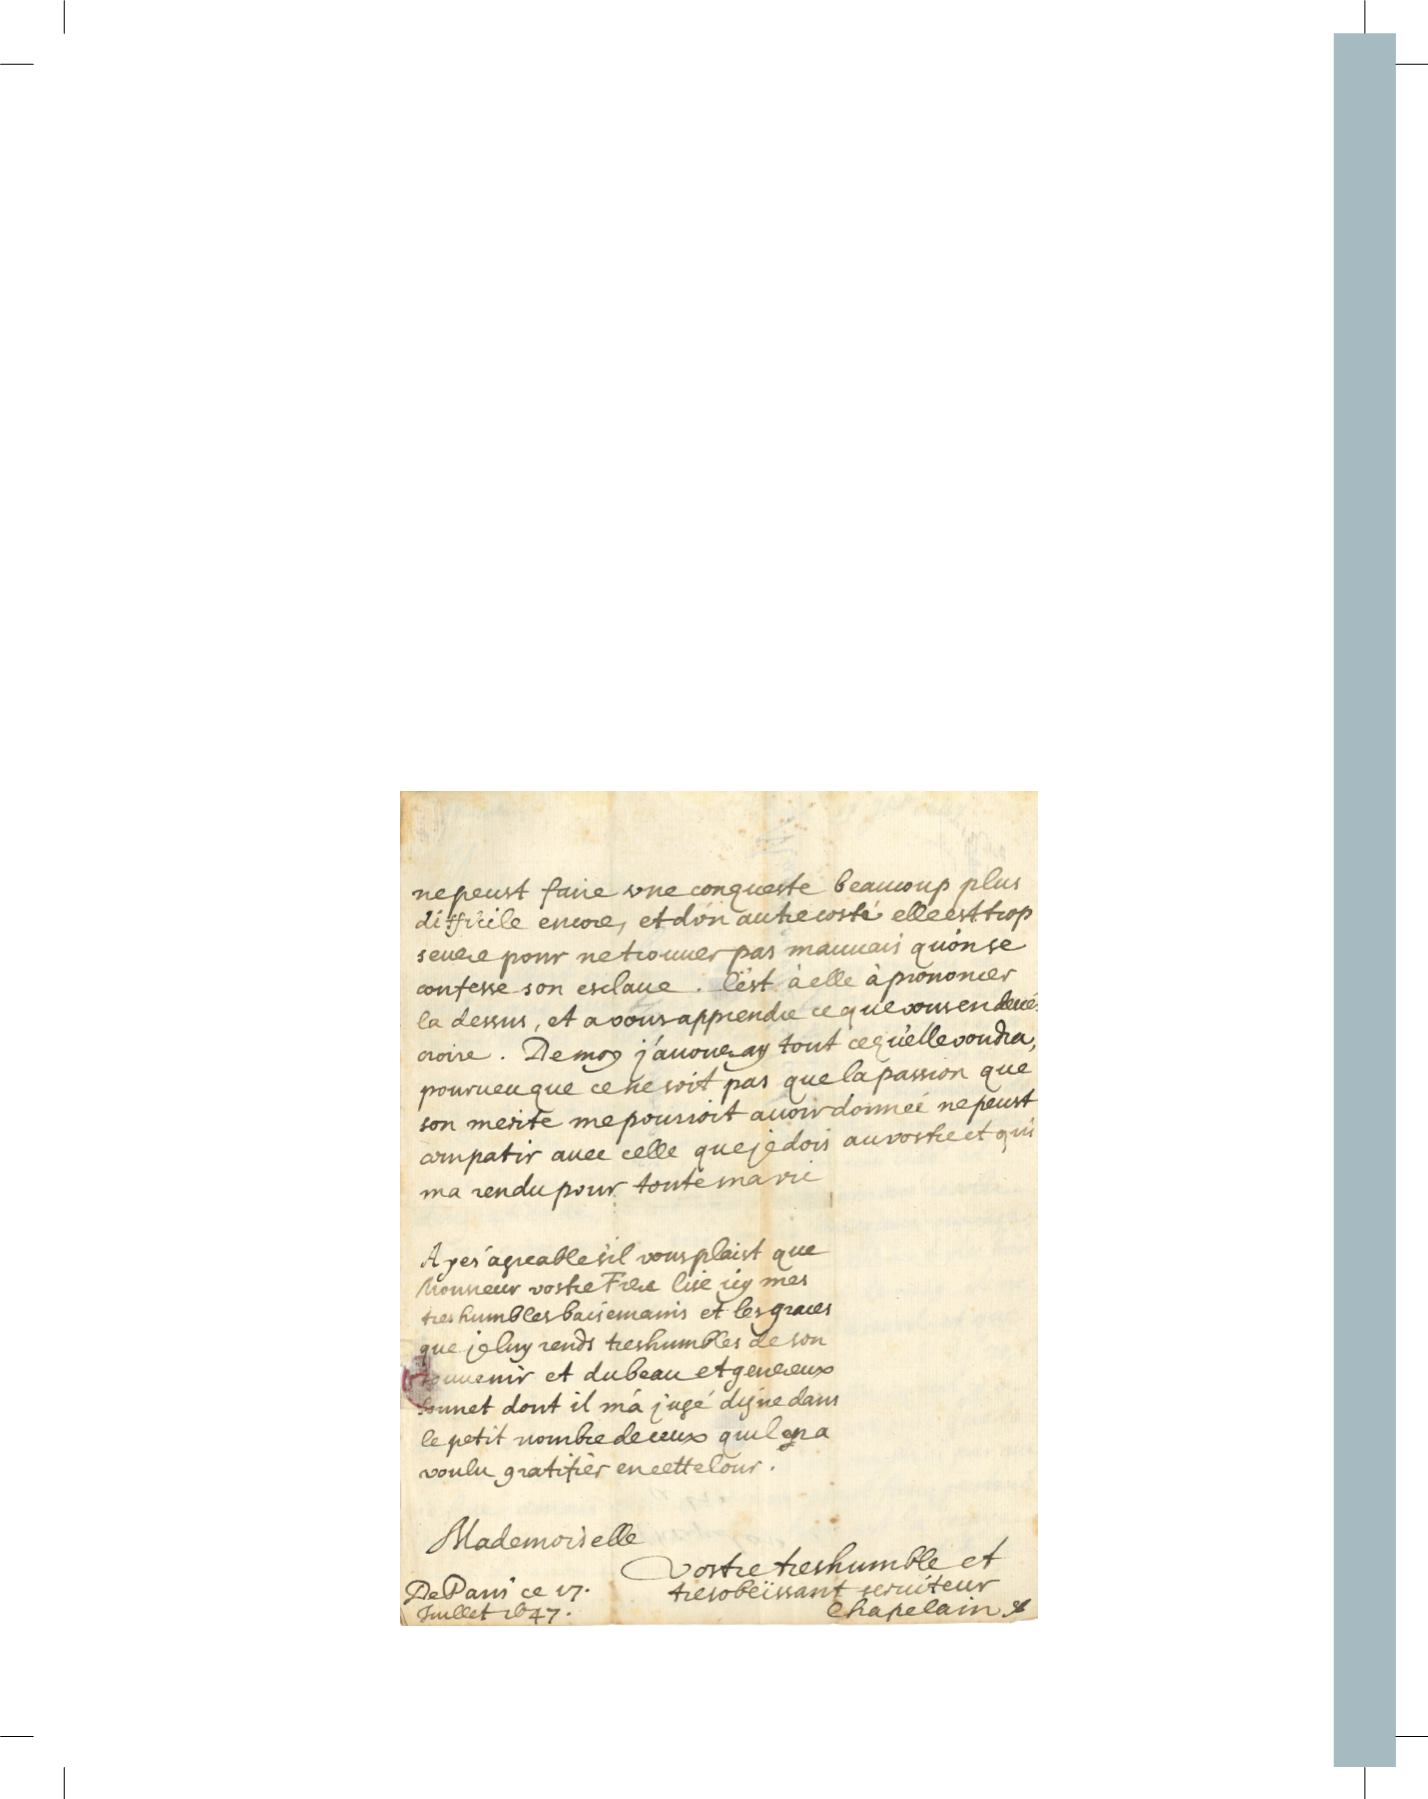 ne peust faire vne conqueste beaucoup plus
difficile encore, et d'ûn autre costé elle est trop
seuere pour ne trouuer pas mauuais qu'on se
confesse son esclaue. C'est à elle à prononcer
la dessus, et a vous apprendre ce que vous en deués
croire. De moy j'auoueray tout ce qu'elle voudra,
pourueu que ce ne soit pas que la passion que
son merite me pourroit auoir donneé ne peust
compatir auec celle que je dois au vostre et qui
ma rendu pour toute ma vie
Ayés agreable s'il vous plaist que
Monsieur vostre Frere lise icy mes
treshumbles baisemains et les graces
que je luy rends treshumbles de son
souuenir et du beau et genereux
sonnet dont il m'a jugé digne dans
le petit nombre de ceux qu'il en a
voulu gratifier en cette Cour.
Mademoiselle
Vostre treshumble et
tresobeïssant seruiteur
Chapelain
De Paris ce 17.
Juillet 1647.